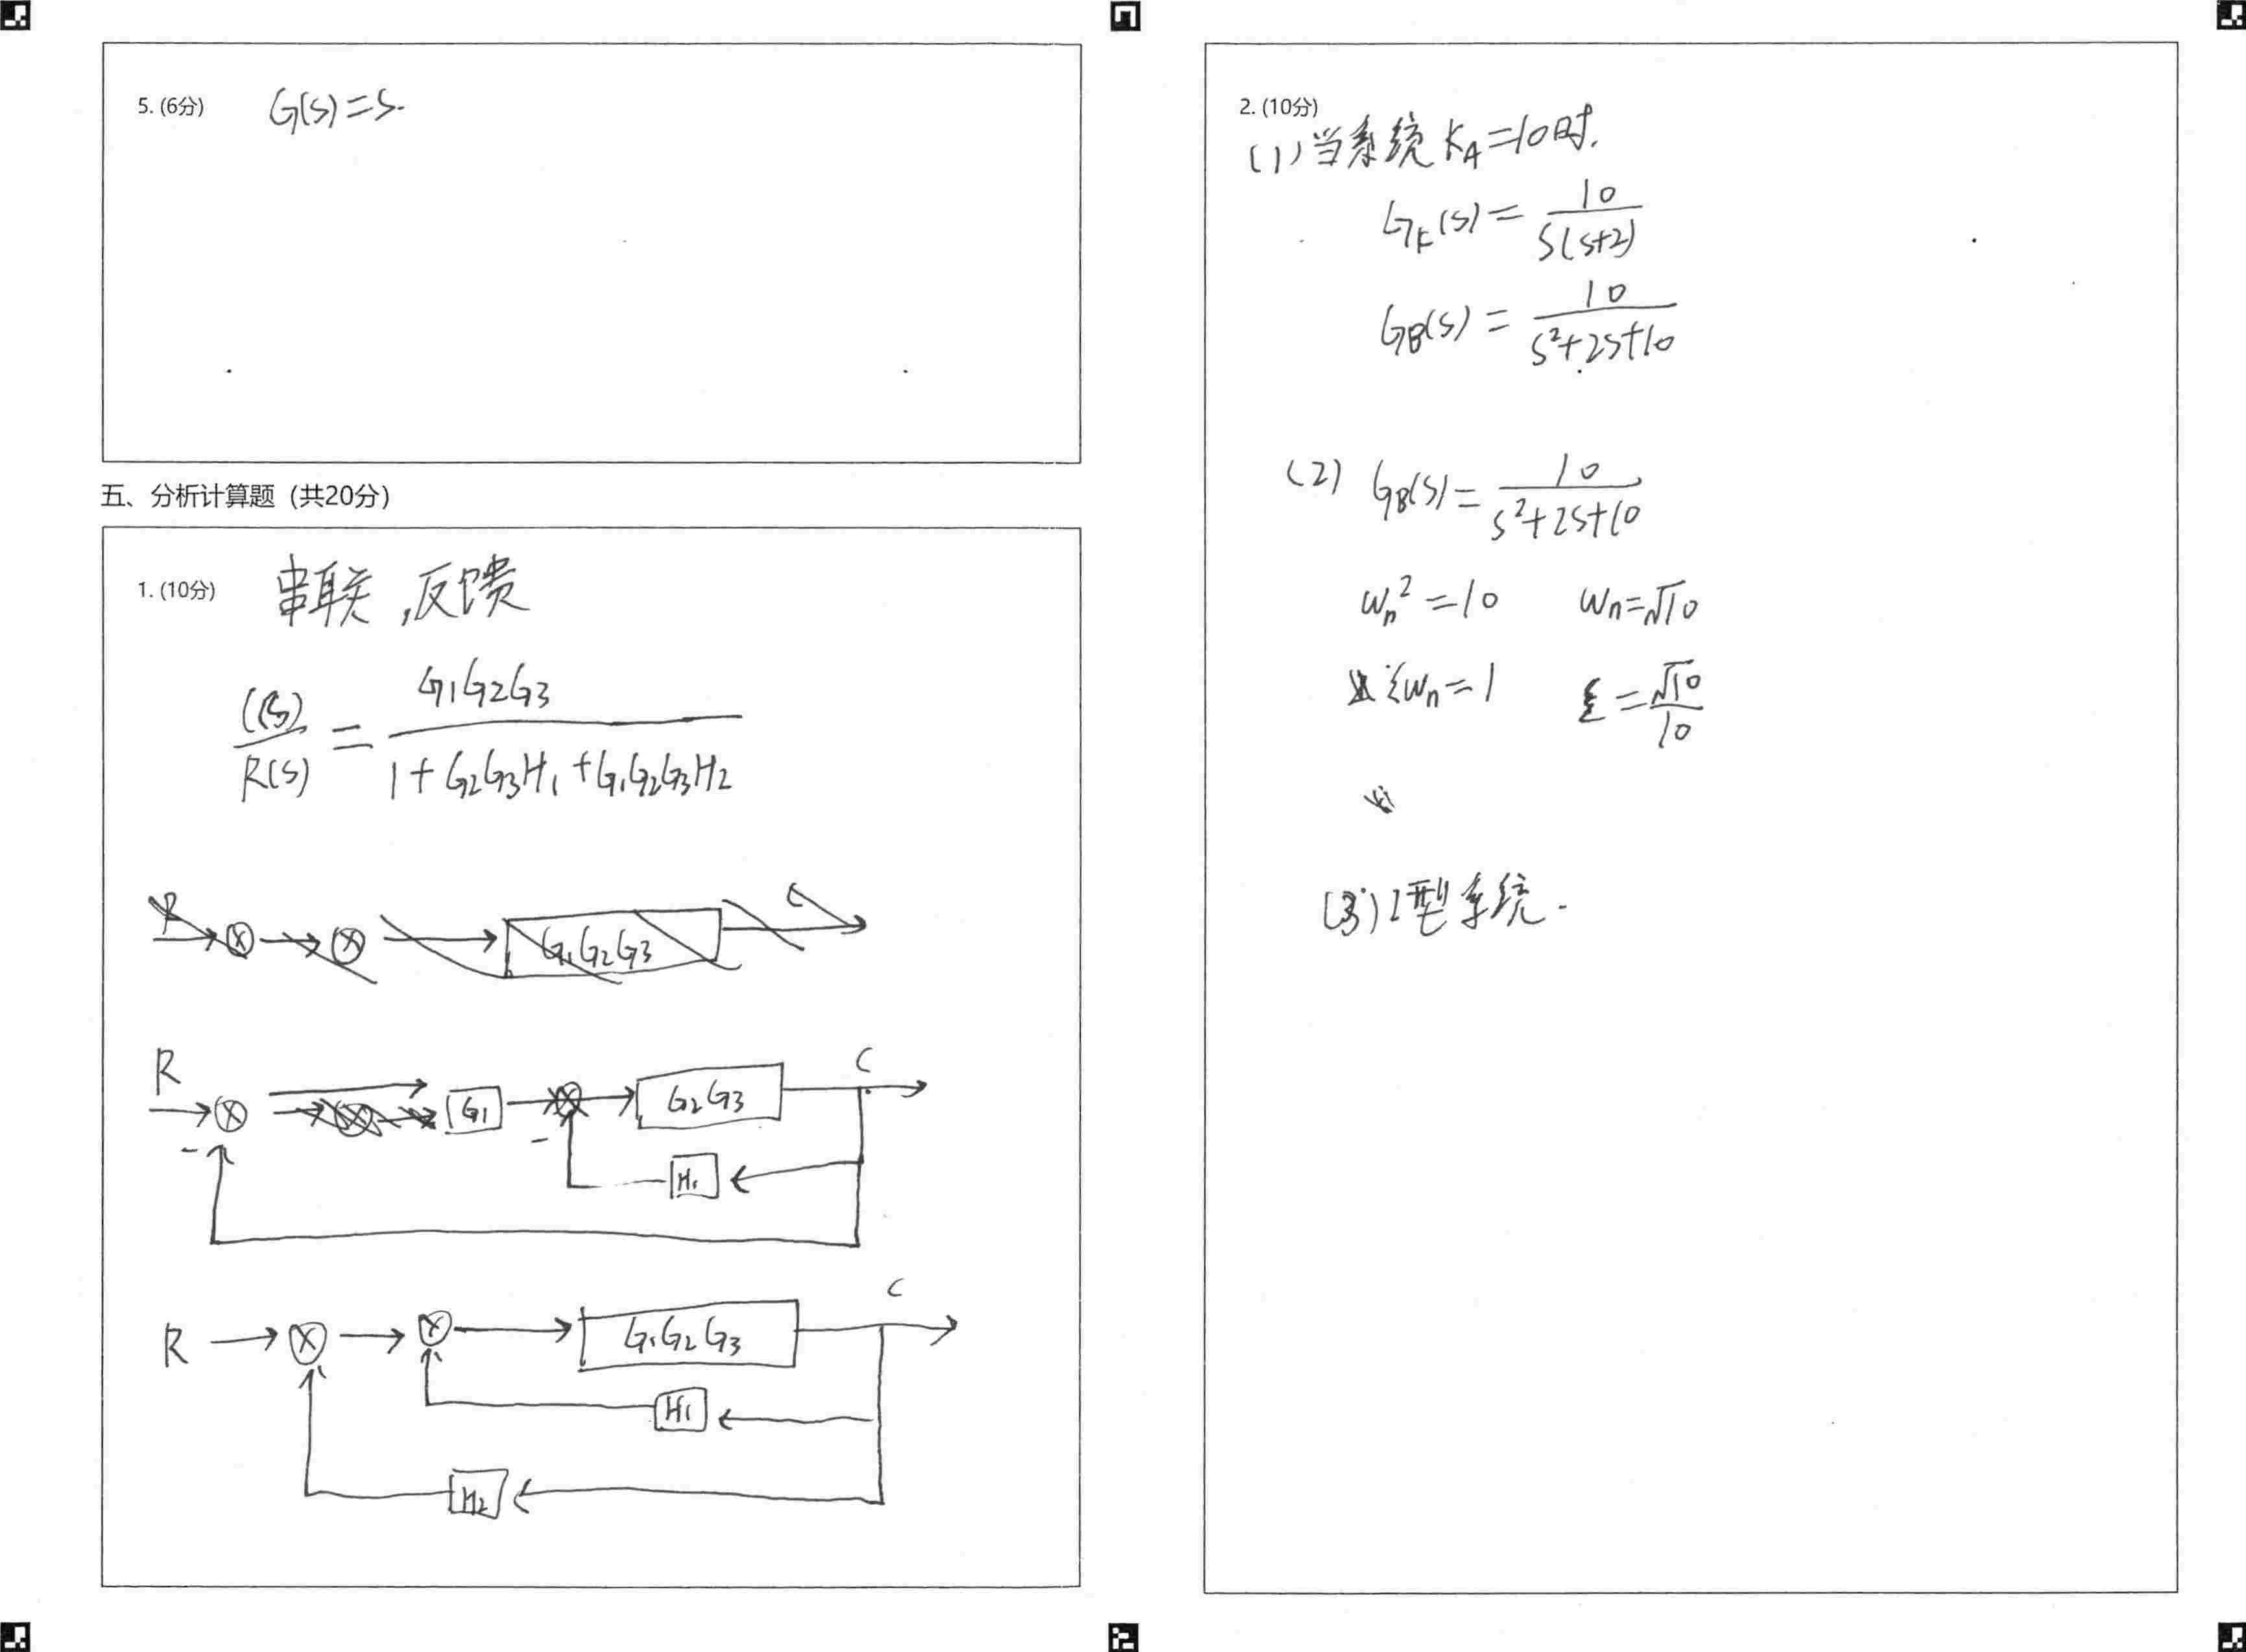 5. (6分) G(s)=s.
五、分析计算题（共20分）
1. (10分) 串联,反馈
C(s)/R(s) = G1G2G3 / 1+G2G3H1+G1G2G3H2
R C
G1G2G3
R C
G1 G2G3
-
- H1
C
R G1G2G3
H1
H2
2. (10分)
(1)当系统KA=10时.
GK(s)= 10 / s(s+2)
GB(s)= 10 / s²+2s+10
(2) GB(s)= 10 / s²+2s+10
ωn²=10 ωn=√10
ξωn=1 ξ=√10/10
(3) I型系统.